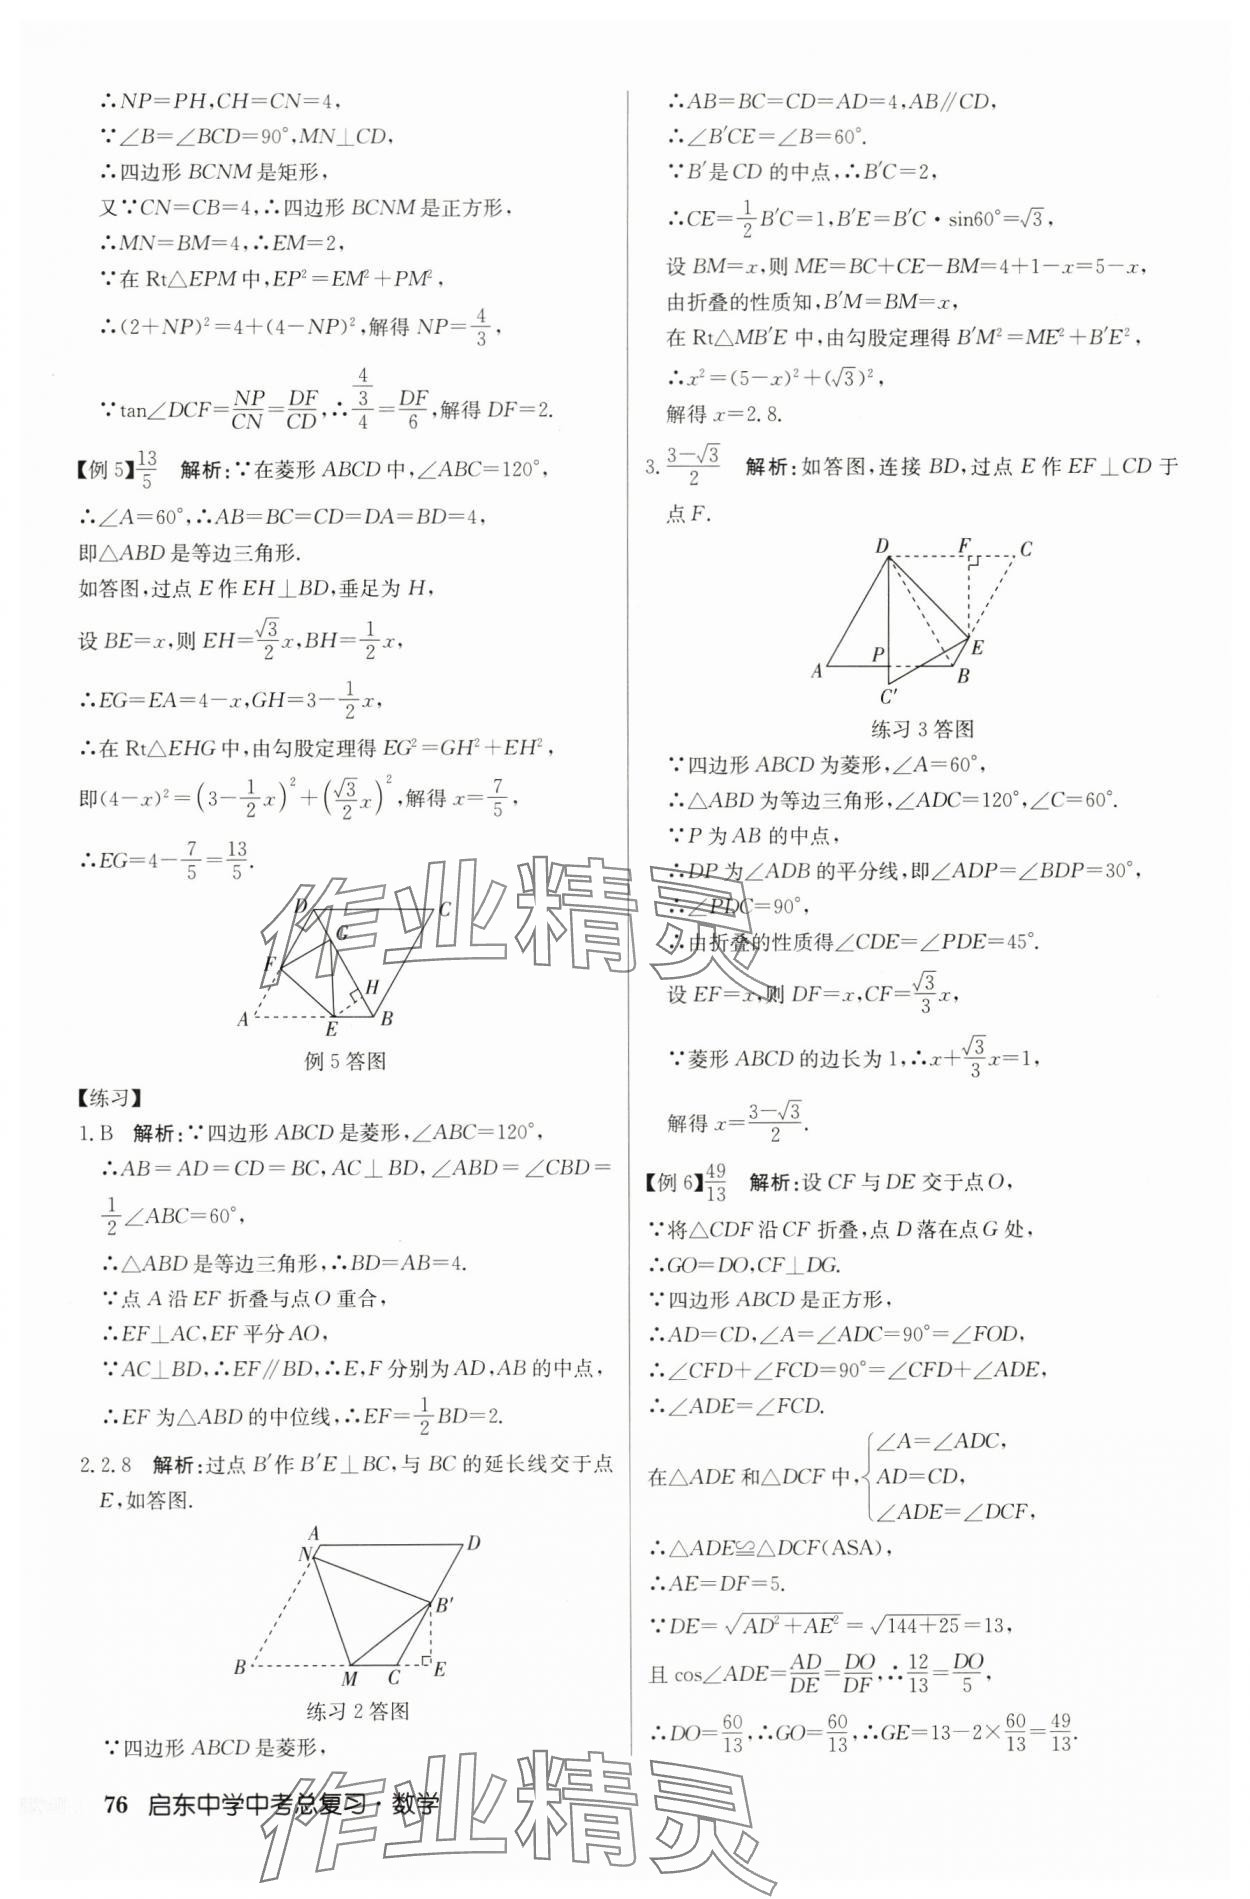 ∴NP=PH,CH=CN=4,
∵∠B=∠BCD=90°,MN⊥CD,
∴四边形BCNM是矩形,
又∵CN=CB=4,∴四边形BCNM是正方形,
∴MN=BM=4,∴EM=2,
∵在Rt△EPM中,EP²=EM²+PM²,
∴(2+NP)²=4+(4-NP)²,解得NP=4/3,
∵tan∠DCF=NP/CN=DF/CD,∴(4/3)/4=DF/6,解得DF=2.
【例5】13/5 解析:∵在菱形ABCD中,∠ABC=120°,
∴∠A=60°,∴AB=BC=CD=DA=BD=4,
即△ABD是等边三角形.
如答图,过点E作EH⊥BD,垂足为H,
设BE=x,则EH=√3/2 x,BH=1/2 x,
∴EG=EA=4-x,GH=3-1/2 x,
∴在Rt△EHG中,由勾股定理得EG²=GH²+EH²,
即(4-x)²=(3-1/2 x)²+(√3/2 x)²,解得x=7/5,
∴EG=4-7/5=13/5.
D C
G
F
H
A E B
例5答图
【练习】
1.B 解析:∵四边形ABCD是菱形,∠ABC=120°,
∴AB=AD=CD=BC,AC⊥BD,∠ABD=∠CBD=
1/2∠ABC=60°,
∴△ABD是等边三角形,∴BD=AB=4.
∵点A沿EF折叠与点O重合,
∴EF⊥AC,EF平分AO,
∵AC⊥BD,∴EF∥BD,∴E,F分别为AD,AB的中点,
∴EF为△ABD的中位线,∴EF=1/2 BD=2.
2.2.8 解析:过点B′作B′E⊥BC,与BC的延长线交于点
E,如答图.
A D
N
B′
B M C E
练习2答图
∵四边形ABCD是菱形,
76 启东中学中考总复习·数学
∴AB=BC=CD=AD=4,AB∥CD,
∴∠B′CE=∠B=60°.
∵B′是CD的中点,∴B′C=2,
∴CE=1/2 B′C=1,B′E=B′C·sin60°=√3,
设BM=x,则ME=BC+CE-BM=4+1-x=5-x,
由折叠的性质知,B′M=BM=x,
在Rt△MB′E中,由勾股定理得B′M²=ME²+B′E²,
∴x²=(5-x)²+(√3)²,
解得x=2.8.
3.(3-√3)/2 解析:如答图,连接BD,过点E作EF⊥CD于
点F.
D F C
E
A P B
C′
练习3答图
∵四边形ABCD为菱形,∠A=60°,
∴△ABD为等边三角形,∠ADC=120°,∠C=60°.
∵P为AB的中点,
∴DP为∠ADB的平分线,即∠ADP=∠BDP=30°,
∴∠PDC=90°,
∴由折叠的性质得∠CDE=∠PDE=45°.
设EF=x,则DF=x,CF=√3/3 x,
∵菱形ABCD的边长为1,∴x+√3/3 x=1,
解得x=(3-√3)/2.
【例6】49/13 解析:设CF与DE交于点O,
∵将△CDF沿CF折叠,点D落在点G处,
∴GO=DO,CF⊥DG.
∵四边形ABCD是正方形,
∴AD=CD,∠A=∠ADC=90°=∠FOD,
∴∠CFD+∠FCD=90°=∠CFD+∠ADE,
∴∠ADE=∠FCD.
在△ADE和△DCF中,{∠A=∠ADC,
AD=CD,
∠ADE=∠DCF,
∴△ADE≌△DCF(ASA),
∴AE=DF=5.
∵DE=√(AD²+AE²)=√(144+25)=13,
且cos∠ADE=AD/DE=DO/DF,∴12/13=DO/5,
∴DO=60/13,∴GO=60/13,∴GE=13-2×60/13=49/13.
作业精灵
作业精灵